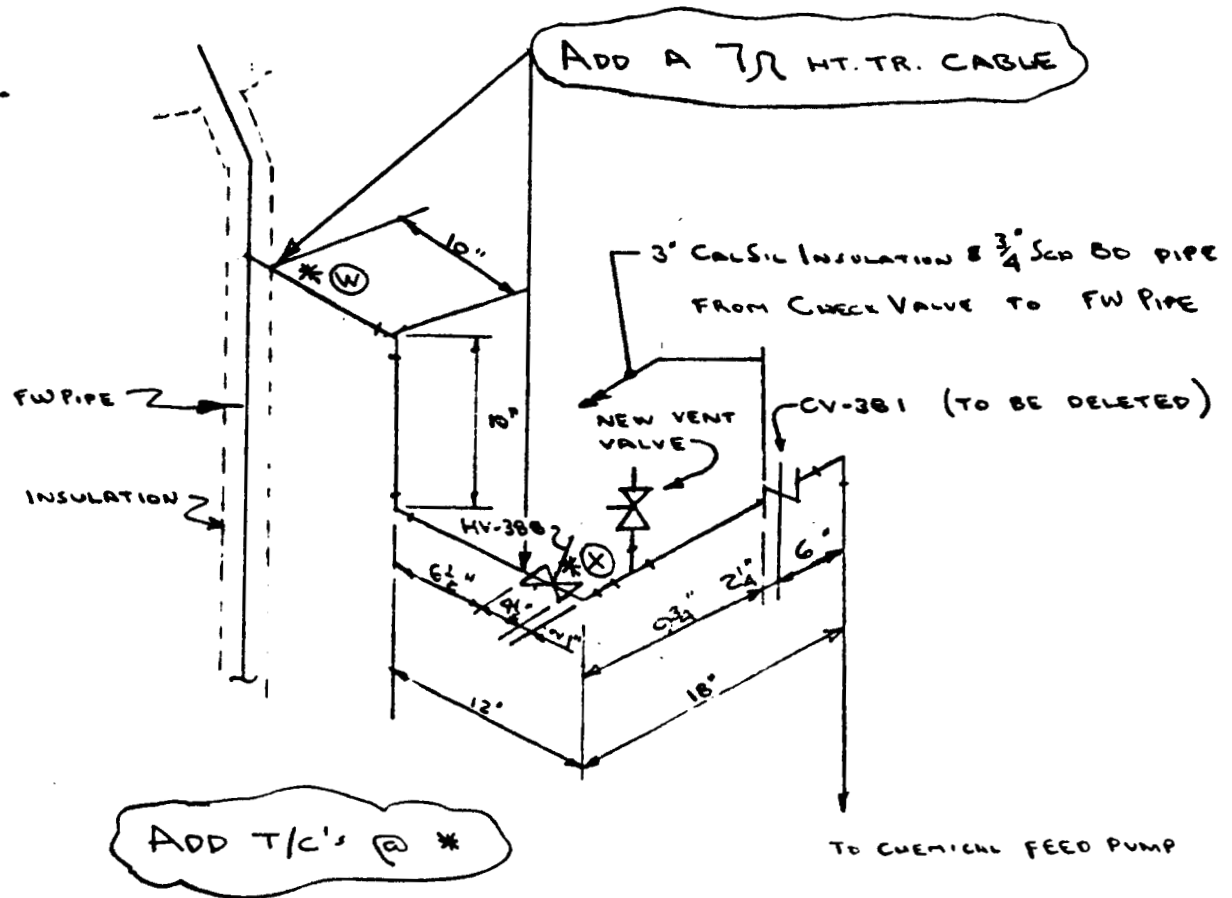 ADD A 7Ω HT. TR. CABLE
10"
* W
3" CALSIL INSULATION & 3/4" SCH 80 PIPE
FROM CHECK VALVE TO FW PIPE
FW PIPE
NEW VENT
VALVE
CV-381 (TO BE DELETED)
INSULATION
HV-388
* X
6"
2 1/4"
6 1/2"
9 3/4"
18"
12"
ADD T/C's @ *
TO CHEMICAL FEED PUMP